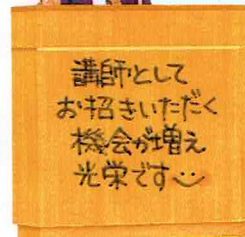 講師として
お招きいただく
機会が増え
光栄です